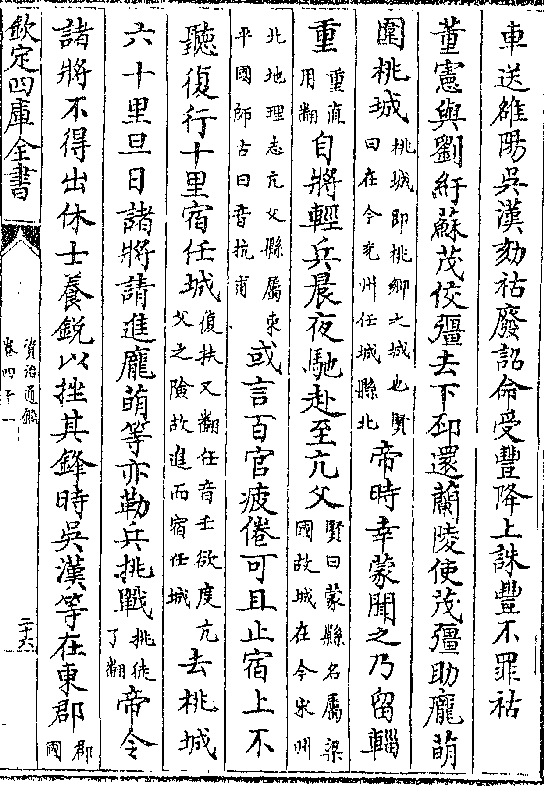 車送雒陽吳漢劾祜廢詔命受豐降上誅豐不罪祜
董憲與劉紆蘇茂佼彊去下邳還蘭陵使茂彊助龐萌
圍桃城桃城即桃鄉之城也賢曰在今兖州任城縣北帝時幸蒙聞之乃留輜
重重直用翻自將輕兵晨夜馳赴至亢父賢曰蒙縣名屬梁國故城在今宋州
北地理志亢父縣屬東平國師古曰音抗甫或言百官疲倦可且止宿上不
聽復行十里宿任城復扶又翻任音壬欲度亢父之險故進而宿任城去桃城
六十里旦日諸將請進龐萌等亦勒兵挑戰挑徒了翻帝令
諸將不得出休士養銳以挫其鋒時吳漢等在東郡郡國
欽定四庫全書
資治通鑑
卷四十一
二十六